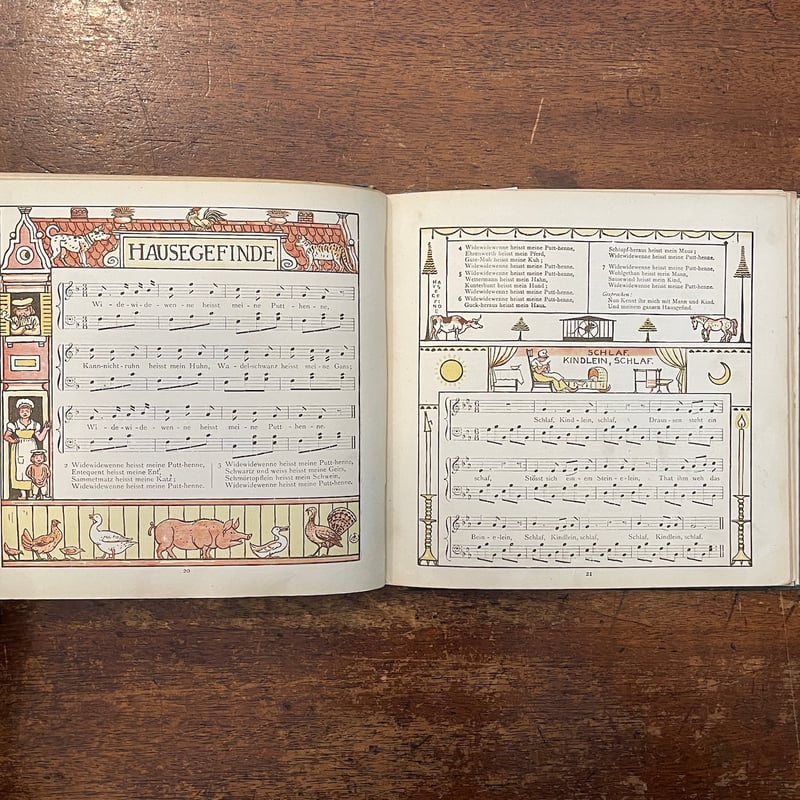 HAUSEGEFINDE
Wi - de - wi - de - wen - ne heisst mei - ne Putt - hen - ne,
Kann-nicht-ruhn heisst mein Huhn, Wa - del-schwanz heisst mei - ne Gans;
Wi - de - wi - de - wen - ne heisst mei - ne Putt - hen - ne.
2 Widewidewenne heisst meine Putt-henne,
Entequent heisst meine Ent,
Sammetmatz heisst meine Katz;
Widewidewenne heisst meine Putt-henne.
3 Widewidewenne heisst meine Putt-henne,
Schwartz und weiss heisst meine Geiss,
Schmirtopflein heisst mein Schwein,
Widewidewenne heisst meine Putt-henne.
20
HAUSGEFINDE
4 Widewidewenne heisst meine Putt-henne,
Ehrenwerth heisst mein Pferd,
Gute-Muh heisst meine Kuh;
Widewidewenne heisst meine Putt-henne.
5 Widewidewenne heisst meine Putt-henne,
Wettermann heisst mein Hahn,
Kunterbunt heisst mein Hund;
Widewidewenne heisst meine Putt-henne.
6 Widewidewenne heisst meine Putt-henne,
Guck-heraus heisst mein Haus,
Schlupf-heraus heisst mein Maus;
Widewidewenne heisst meine Putt-henne.
7 Widewidewenne heisst meine Putt-henne,
Wohlgethan heisst mein Mann,
Sausewind heisst mein Kind,
Widewidewenne heisst meine Putt-henne.
Gesprochen:
Nun Kennt ihr mich mit Mann und Kind,
Und meinem ganzen Hausgefind.
SCHLAF,
KINDLEIN, SCHLAF.
Schlaf, Kind - lein, schlaf, Draus - sen steht ein
schaf, Stösst sich ein - em Stein - e - lein, That ihm weh das
Bein - e - lein, Schlaf, Kindlein, schlaf, Schlaf, Kindlein, schlaf.
21